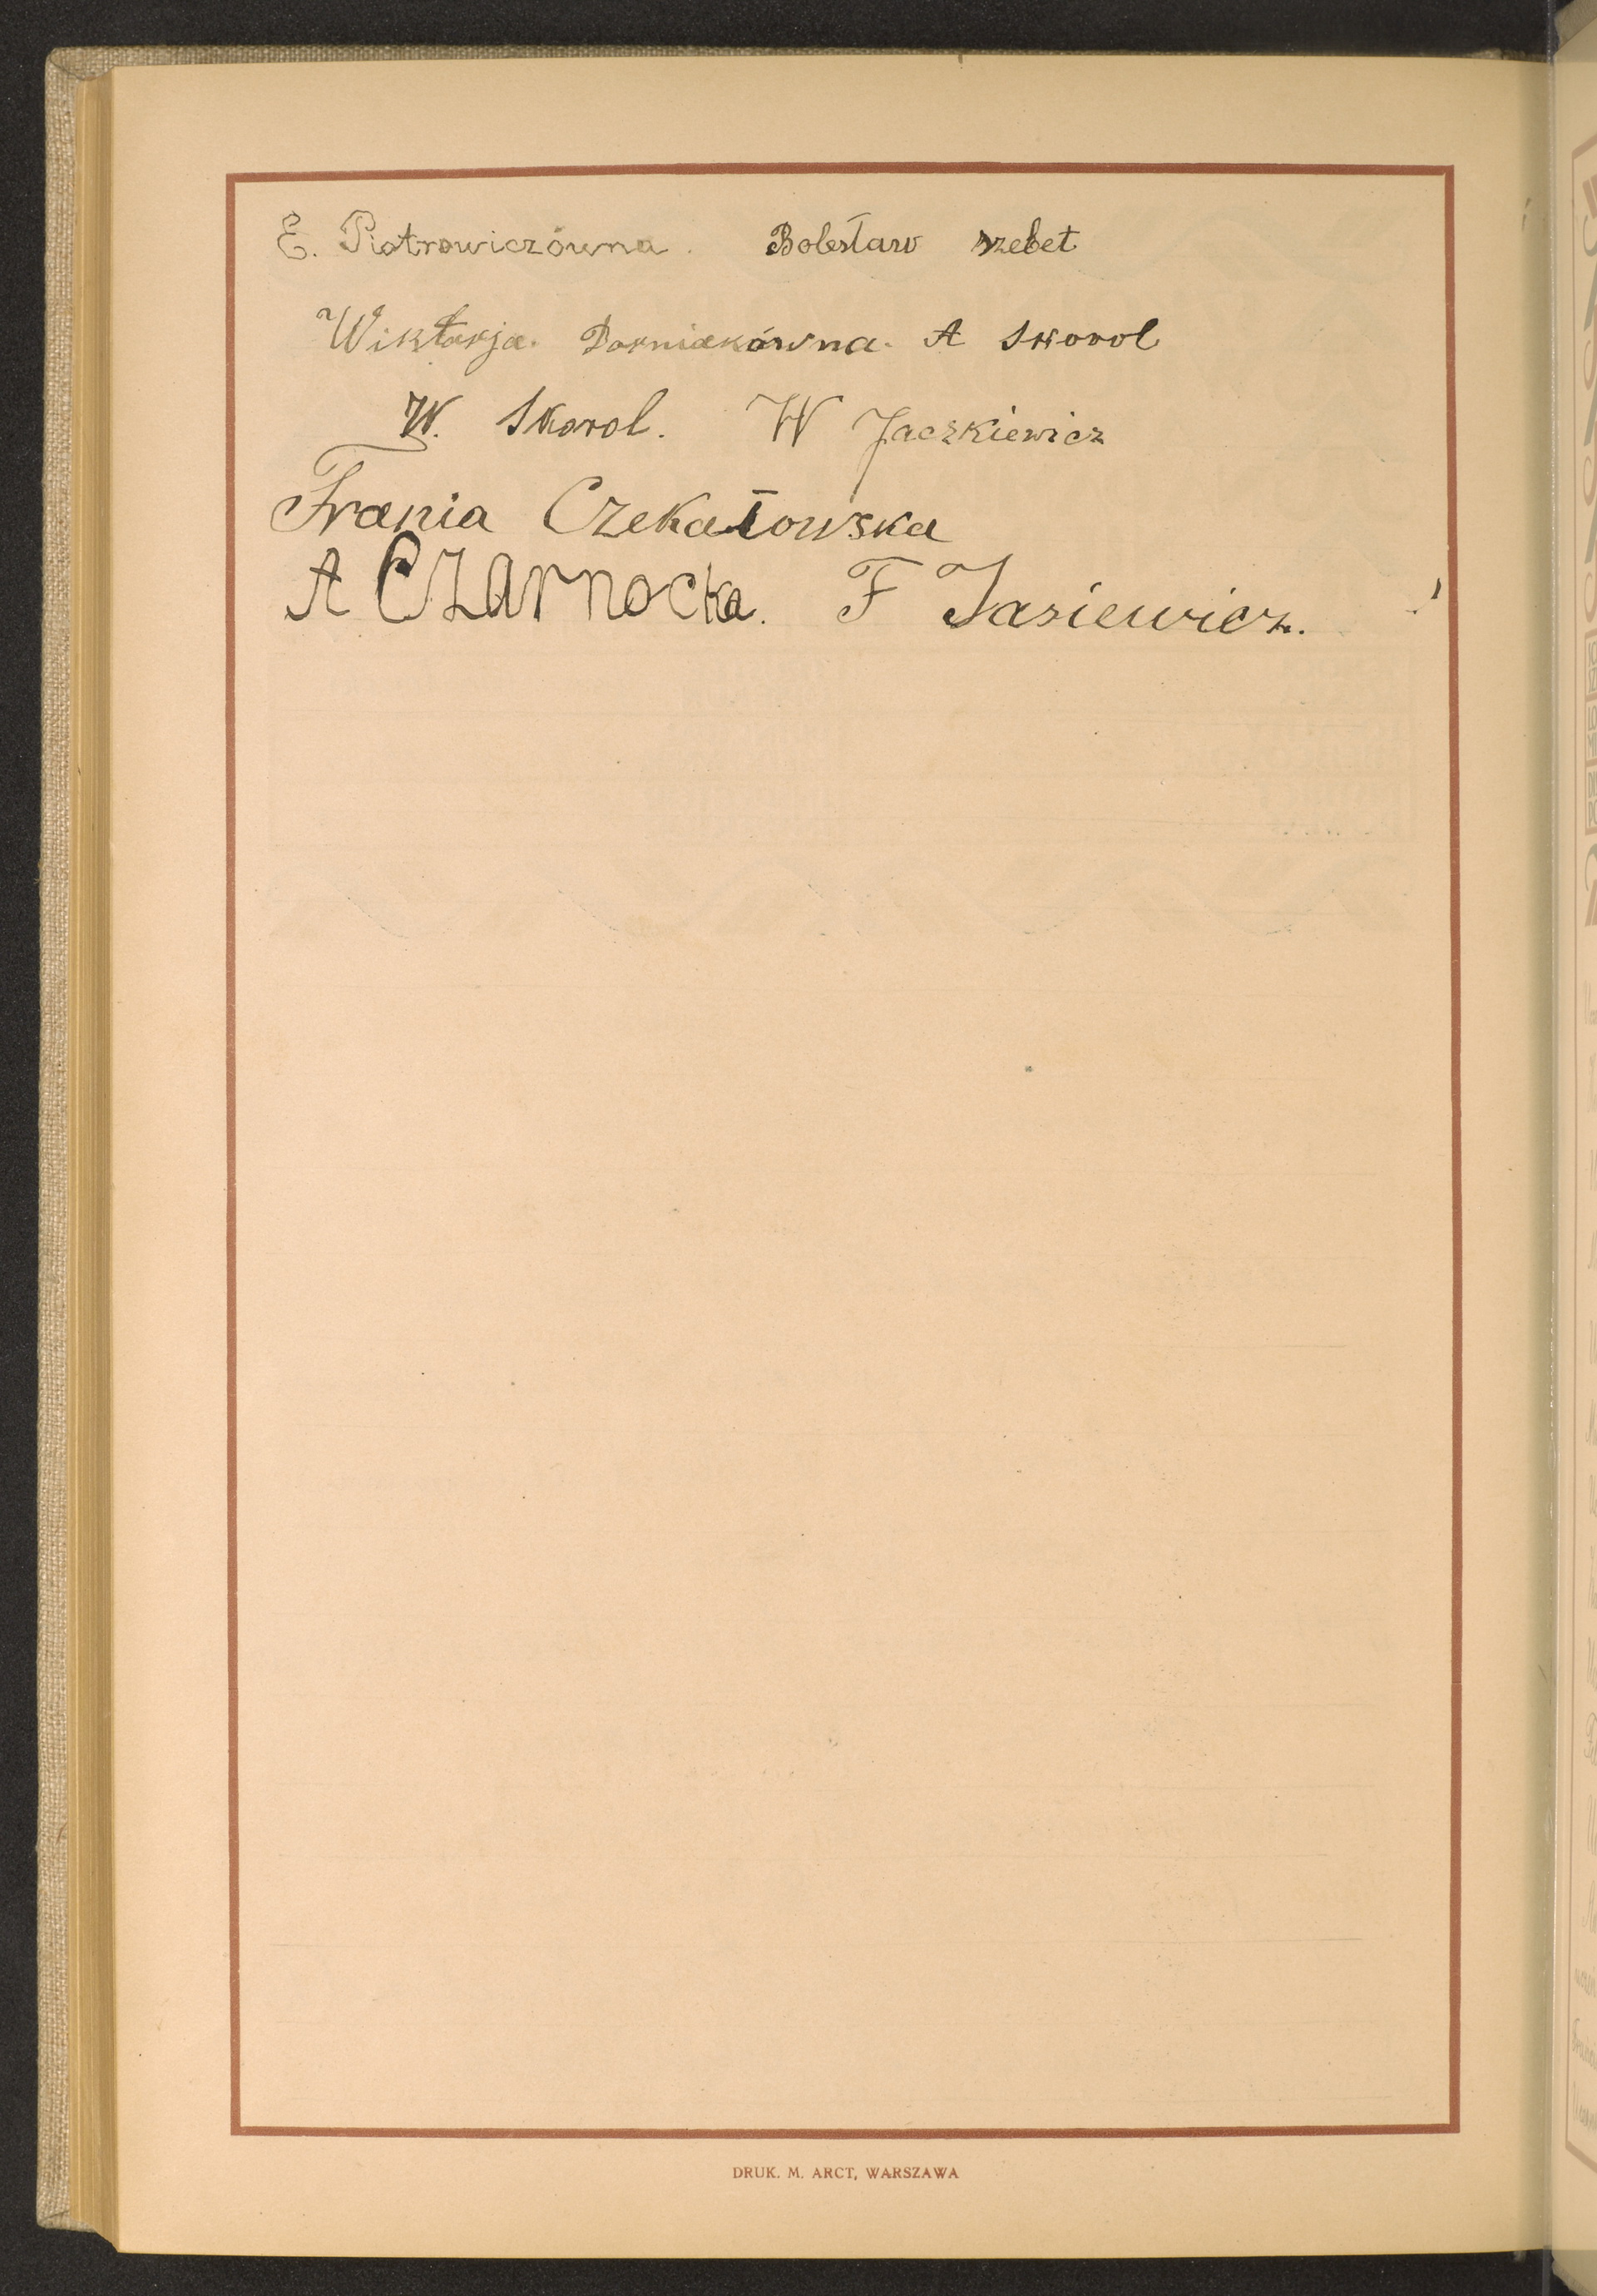 E. Piotrowiczówna. Bolesław szebet
Wiktorja. Dorniakówna. A Skorol
W. Skorol. W Jaczkiewicz
Frania Czekałowska
A CZArnocka. F Jasiewicz.
DRUK. M. ARCT, WARSZAWA